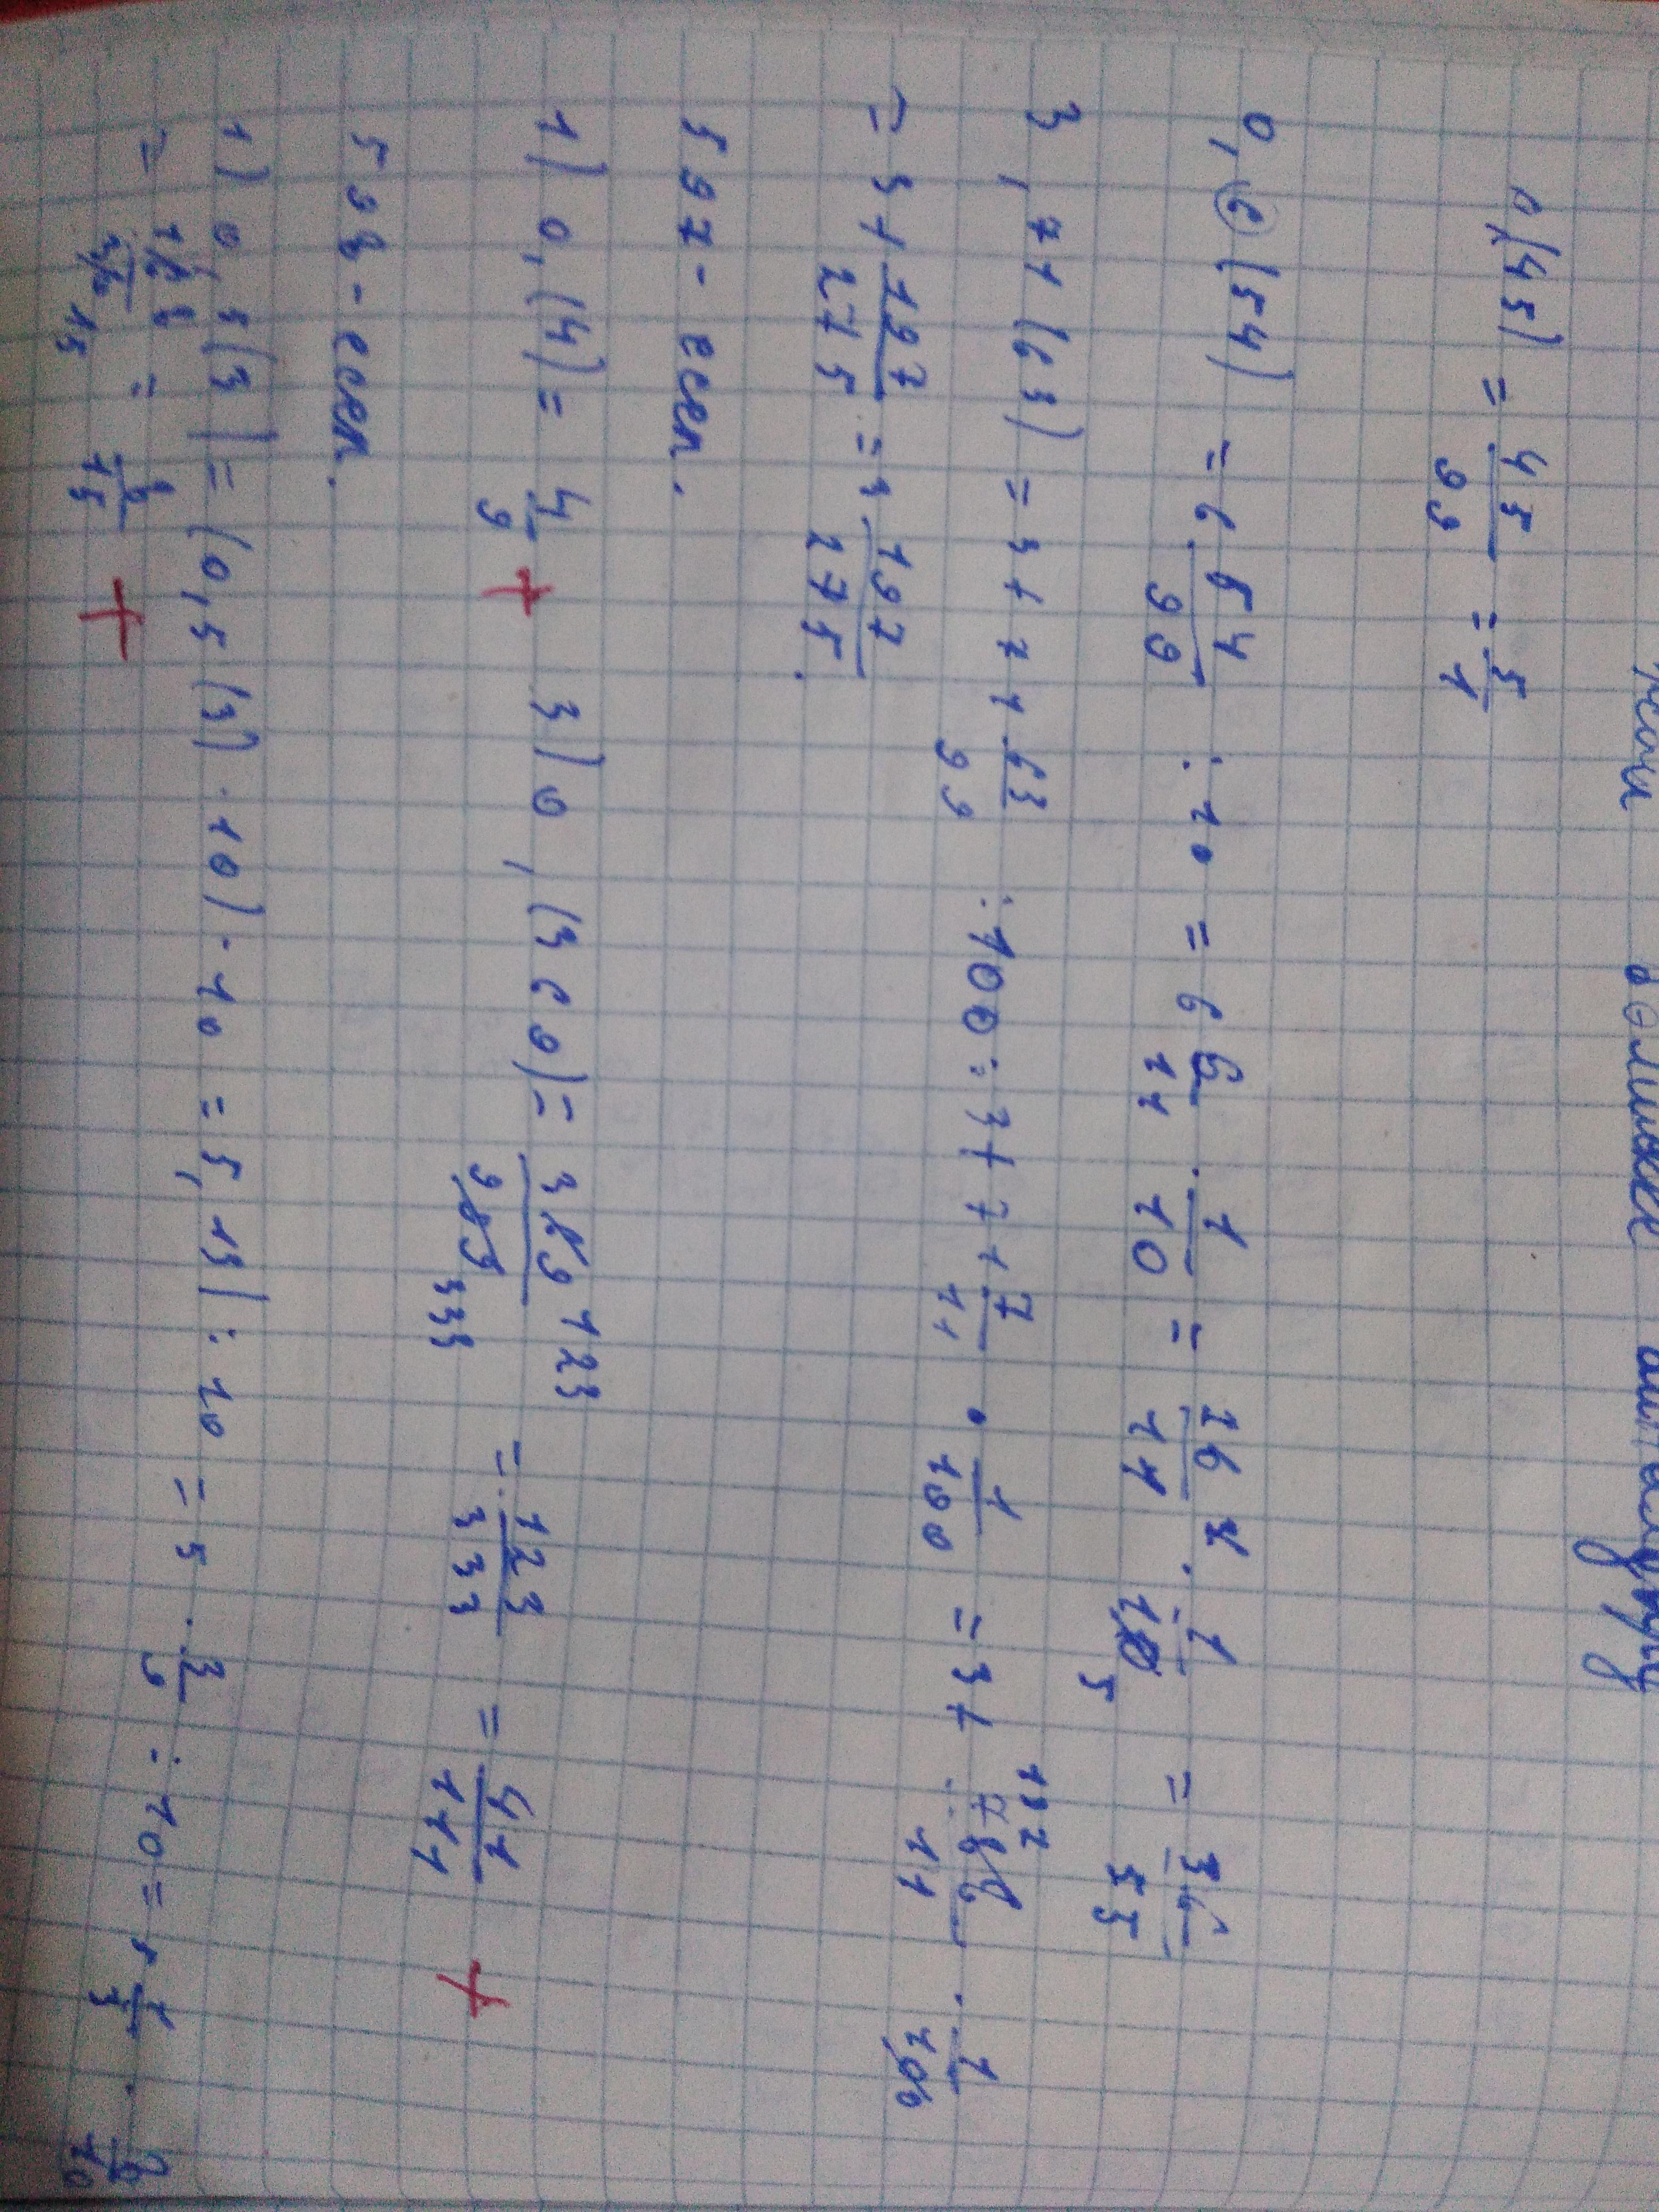 0,(45) = 45/99 = 5/1
0,6(54) = 6 54/99 : 10 = 6 6/11 · 1/10 = 36/55
3,71(63) = 3 + 71 63/99 : 100 = 3 + 71 7/11 · 1/100 = 3 + 788 197/11 · 1/100
= 3 + 197/275 = 3 197/275.
507 - есеп.
1) 0,(4) = 4/9 + 3) 0,(369) = 369 123/999 333 = 123/333 = 41/111 +
508 - есеп.
1) 0,5(3) = (0,5(3) · 10) : 10 = 5,(3) : 10 = 5 · 3/9 : 10 = 5 1/3 · 1/10
= 16 8/30 15 = 8/15 +